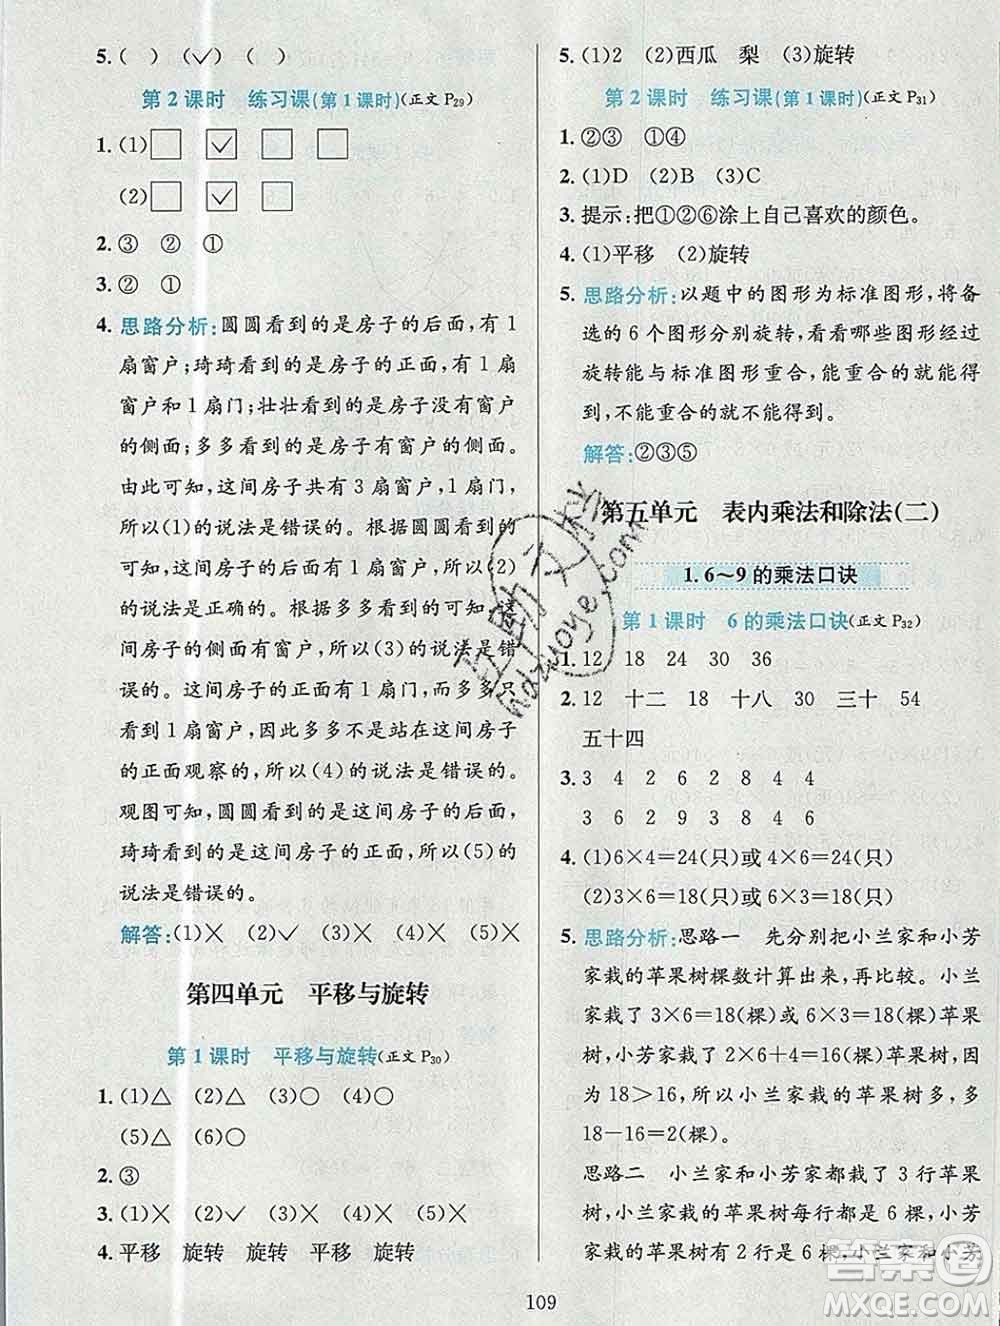 5. ( ) (✓) ( )
第 2 课时 练习课(第 1 课时)(正文 P29)
1. (1)□ ☑ □ □
(2)□ ☑ □
2. ③ ② ①
3. ② ①
4. 思路分析:圆圆看到的是房子的后面,有 1
扇窗户;琦琦看到的是房子的正面,有 1 扇
窗户和 1 扇门;壮壮看到的是房子有窗户
的侧面;多多看到的是房子有窗户的侧面。
由此可知,这间房子共有 3 扇窗户,
所以(1)的说法是错误的。根据圆圆看到
的是房子的后面,有 1 扇窗户,所以(2)
的说法是正确的。根据多多看到的是这
间房子有窗户的侧面可知,(3)的说法是
错误的。这间房子有 1 扇门,而多多只
看到 1 扇窗户,因此多多不是站在房子
的正面观察的,所以(4)的说法是错误的。
观图可知,圆圆看到的是这间房子的后面,
琦琦看到的是这间房子的正面,所以(5)的
说法是错误的。
解答:(1)✕ (2)✓ (3)✕ (4)✕ (5)✕
第四单元 平移与旋转
第 1 课时 平移与旋转(正文 P30)
1. (1)△ (2)△ (3)○ (4)○
(5)△ (6)○
2. ③
3. (1)✕ (2)✓ (3)✕ (4)✕ (5)✕
4. 平移 旋转 旋转 平移 旋转
5. (1)2 (2)西瓜 梨 (3)旋转
第 2 课时 练习课(第 1 课时)(正文 P31)
1. ②③ ①④
2. (1)D (2)B (3)C
3. 提示:把①②⑥涂上自己喜欢的颜色。
4. (1)平移 (2)旋转
5. 思路分析:以题中的图形为标准图形,将备
选的 6 个图形分别旋转,看看哪些图形经过
旋转能与标准图形重合,能重合的就能得
到,不能重合的就不能得到。
解答:②③⑤
第五单元 表内乘法和除法(二)
1. 6～9 的乘法口诀
第 1 课时 6 的乘法口诀(正文 P32)
1. 12 18 24 30 36
2. 12 十二 18 十八 30 三十 54
五十四
3. 3 4 2 6 2 8 4 4
3 6 2 9 12 18 6 8
4. (1)6×4=24(只)或 4×6=24(只)
(2)3×6=18(只)或 6×3=18(只)
5. 思路分析:思路一 先分别把小兰家和小芳
家栽的苹果树棵数计算出来,再比较。小兰
家栽了 3×6=18(棵)或 6×3=18(棵)苹果
树,小芳家栽了 2×8=16(棵)苹果树,因
为 18>16,所以小兰家栽的苹果树多,多
18-16=2(棵)。
思路二 小兰家和小芳家都栽了 3 行苹果
树,小兰家栽的苹果树每行都是 6 棵,小芳
家栽的苹果树有 2 行是 6 棵,小兰家和小芳
109
互助文档
hdzuoye.com
答案圈
MXQE.COM